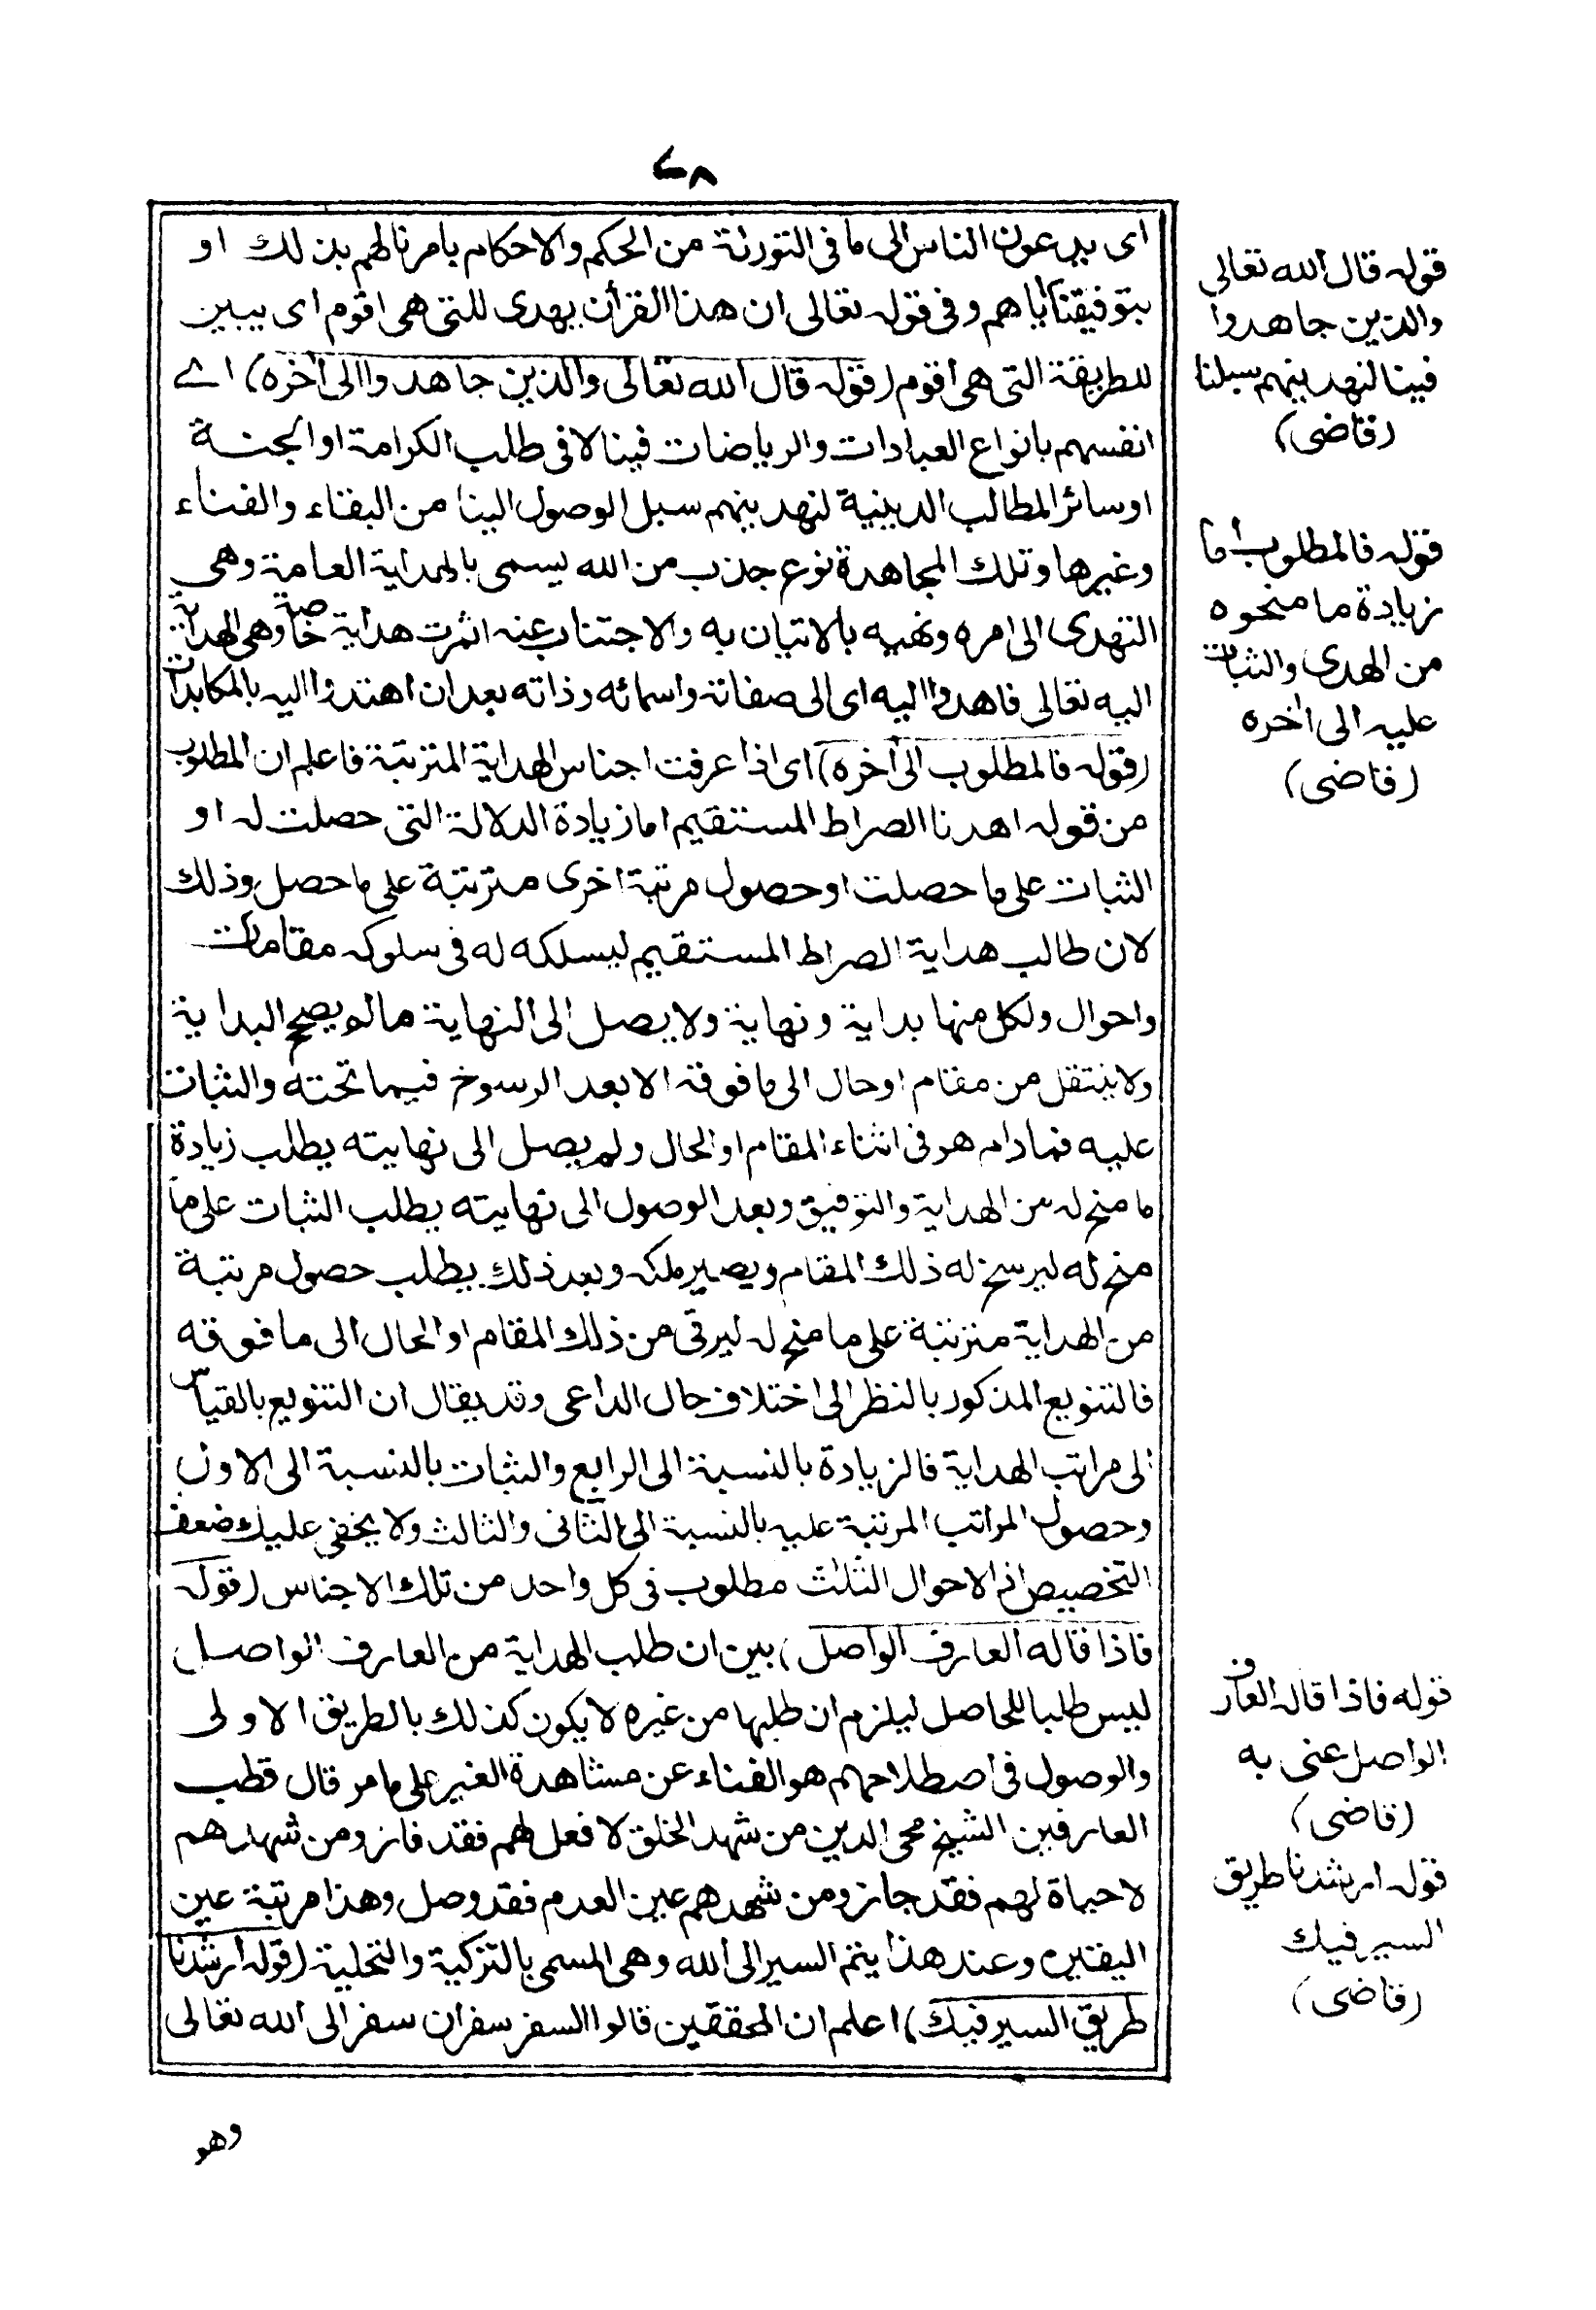 ٦٨
اى يدعون الناس الى ما فى التورٰئة من الحكم والاحكام بامرنا لهم بذلك او
بتوفيقنا اياهم وفى قوله تعالى ان هذا القرأن يهدى للتى هى اقوم اى يبين
للطريقة التى هى اقوم (قوله قال الله تعالى والذين جاهدوا الى أخره) اے
انفسهم بانواع العبادات والرياضات فينا لا فى طلب الكرامة او الجنة
او سائر المطالب الدينية لنهدينهم سبل الوصول الينا من البقاء والفناء
وغيرها وتلك المجاهدة نوع جذب من الله يسمى بالهداية العامة وهى
التهدى الى امره ونهيه بالاتيان به والاجتناب عنه اثمرت هداية خاصة وهى الهداية
اليه تعالى فاهدوا اليه اى الى صفاته واسمائه وذاته بعد ان اهتدوا اليه بالمكابدات
(قوله فالمطلوب الى أخره) اى اذا عرفت اجناس الهداية المترتبة فاعلم ان المطلوب
من قوله اهدنا الصراط المستقيم اما زيادة الدلالة التى حصلت له او
الثبات على ما حصلت او حصول مرتبة اخرى مترتبة على ما حصل وذلك
لان طالب هداية الصراط المستقيم ليسلكه له فى سلوكه مقامات
واحوال ولكل منها بداية ونهاية ولا يصل الى النهاية مالم يصح البداية
ولا ينتقل من مقام او حال الى ما فوقه الا بعد الرسوخ فيما تحته والثبات
عليه فمادام هو فى اثناء المقام او الحال ولم يصل الى نهايته يطلب زيادة
ما منح له من الهداية والتوفيق وبعد الوصول الى نهايته يطلب الثبات على ما
منح له ليرسخ له ذلك المقام ويصير ملكه وبعد ذلك يطلب حصول مرتبة
من الهداية مترتبة على ما منح له ليرقى من ذلك المقام او الحال الى ما فوقه
فالتنويع المذكور بالنظر الى اختلاف حال الداعى وقد يقال ان التنويع بالقياس
الى مراتب الهداية فالزيادة بالنسبة الى الرابع والثبات بالنسبة الى الاول
وحصول المراتب المرتبة عليه بالنسبة الى الثانى والثالث ولا يخفى عليك ضعف
التخصيص اذ الاحوال الثلٰث مطلوب فى كل واحد من تلك الاجناس (قوله
فاذا قاله العارف الواصل) بين ان طلب الهداية من العارف الواصل
ليس طلبا للحاصل ليلزم ان طلبها من غيره لا يكون كذلك بالطريق الاولى
والوصول فى اصطلاحهم هو الفناء عن مشاهدة الغير على ما مر قال قطب
العارفين الشيخ محى الدين من شهد الخلق لا فعل لهم فقد فاز ومن شهدهم
لا حياة لهم فقد جاز ومن شهدهم عين العدم فقد وصل وهذا مرتبة عين
اليقين وعند هذا يتم السير الى الله وهى المسمى بالتزكية والتحلية (قوله ارشدنا
طريق السير فيك) اعلم ان المحققين قالوا السفر سفران سفر الى الله تعالى
وهو
قوله قال الله تعالى
والذين جاهدوا
فينا لنهدينهم سبلنا
(قاضى)
قوله فالمطلوب أما
زيادة ما منحوه
من الهدى والثبات
عليه الى أخره
(قاضى)
قوله فاذا قاله العارف
الواصل عنى به
(قاضى)
قوله ارشدنا طريق
السير فيك
(قاضى)